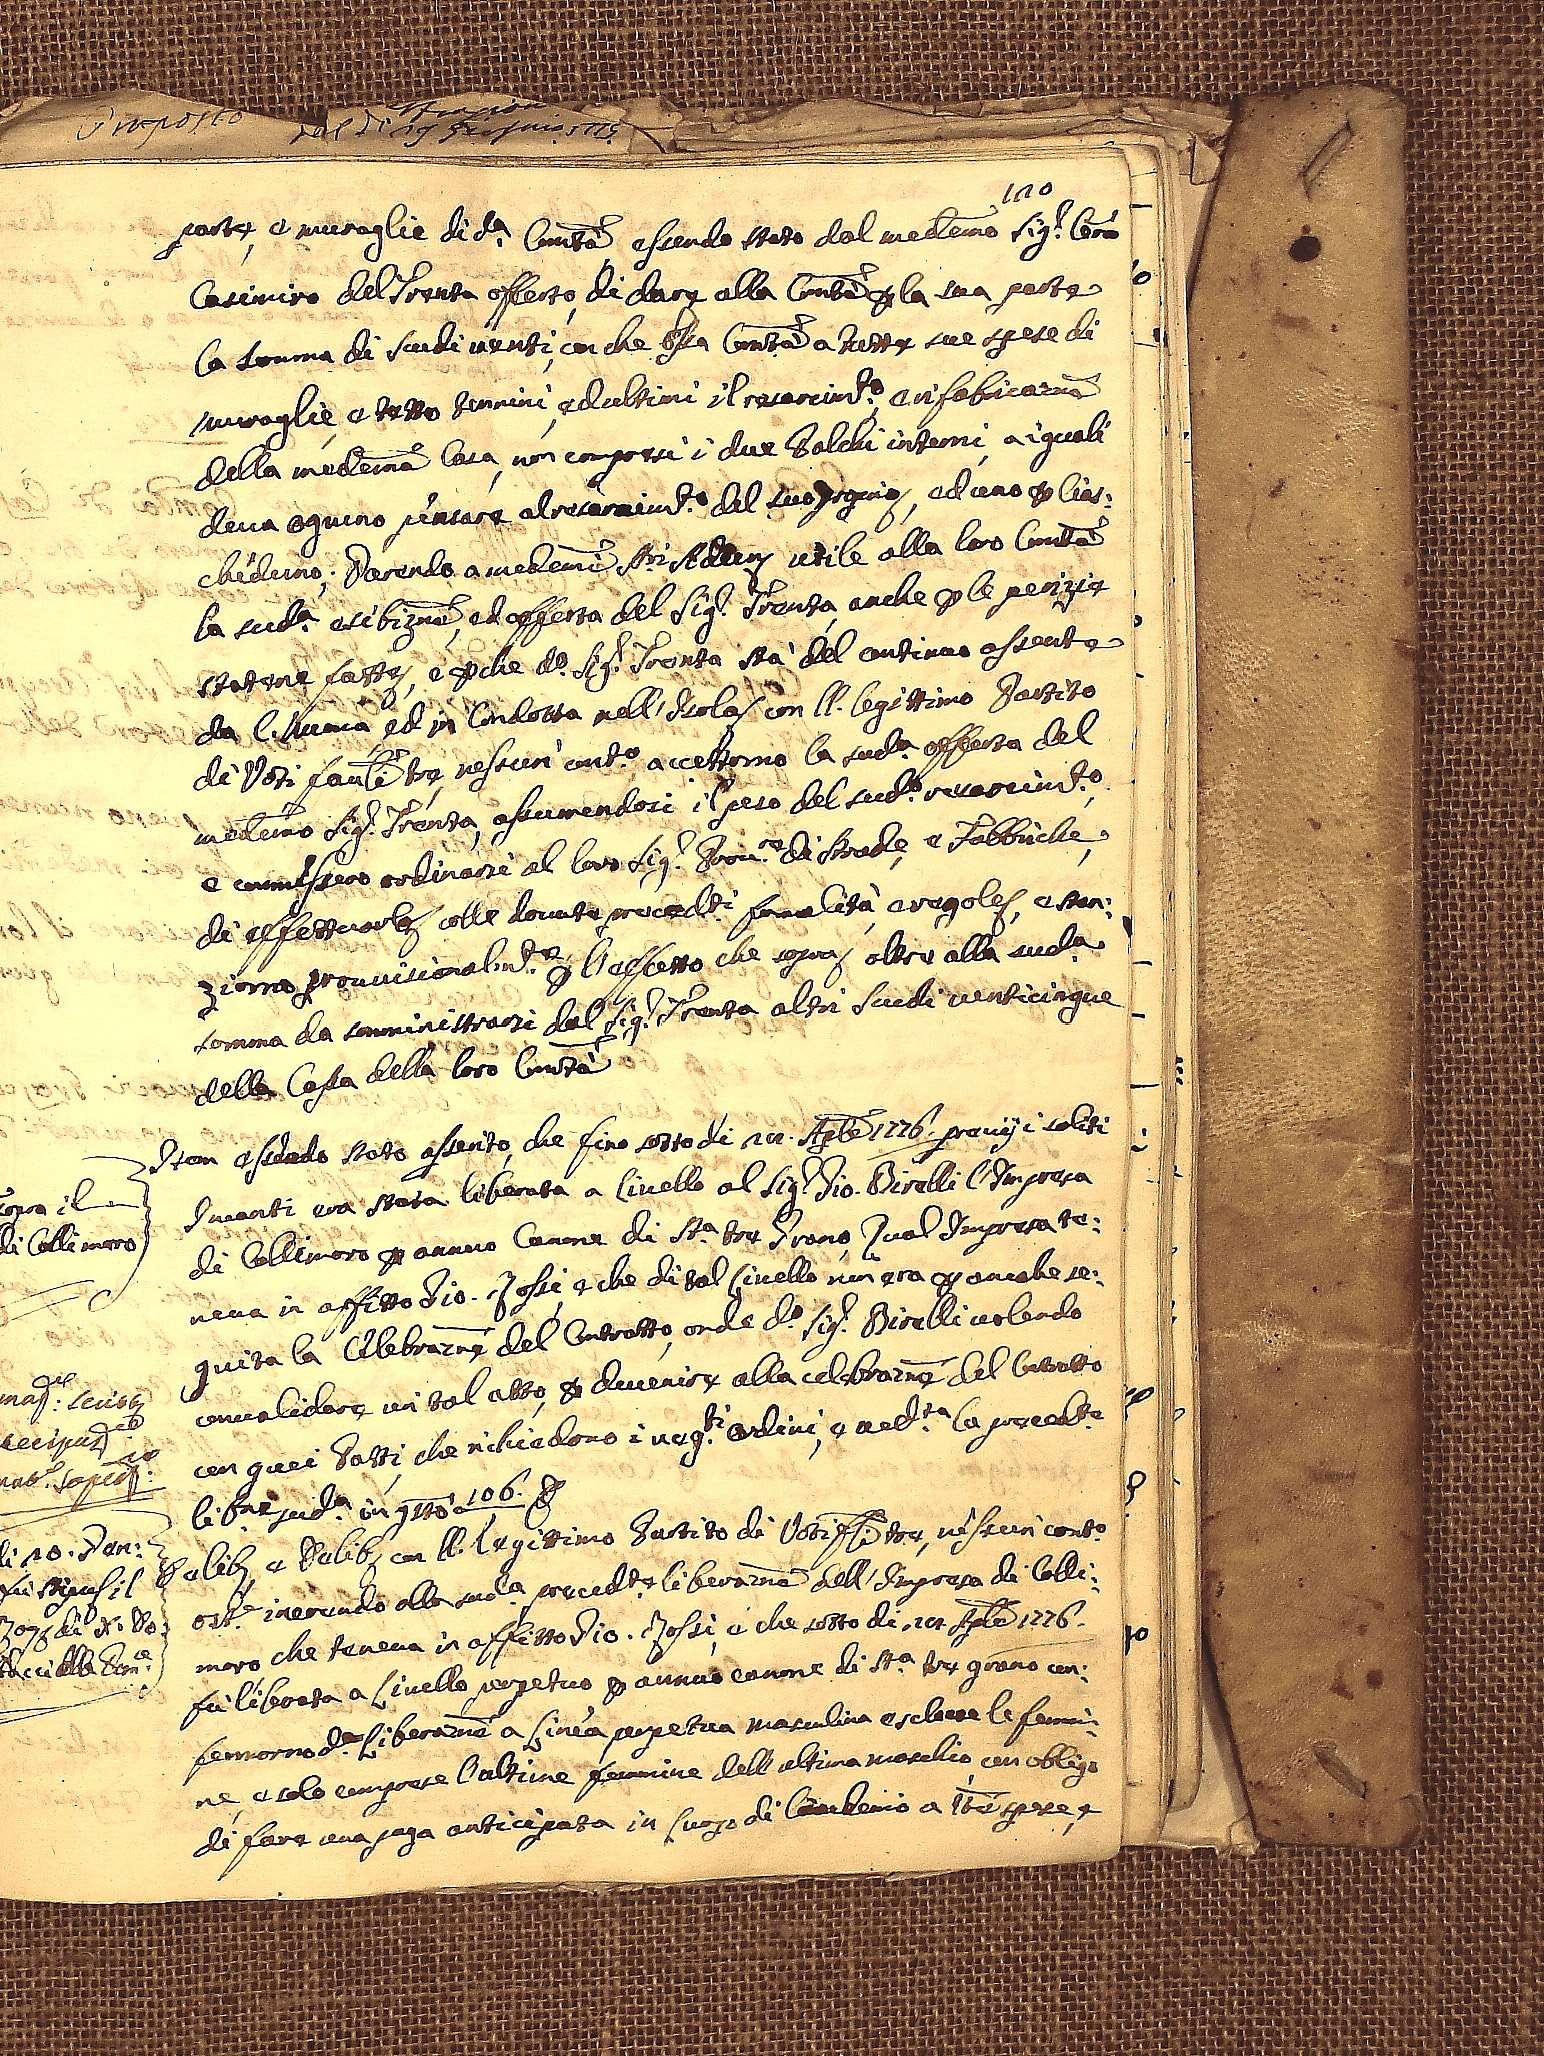 Imposto
dal dì 19
110
parte, e muraglie di d.ª Comtà essendo stato dal medemo Sig.r
Casimiro del Trenta offerto, di dare alla Comtà p la sua parte
la somma di scudi venti, con che Comtà a tutte sue spese di
muraglie, e tetto termini, ed ultimi il resarcim.to, e rifabicazne
della medema Casa, non compresi i due Solchi interni, a i quali
deva ognuno pensare al resarcim.to del suo proprio, ed uno p cias:
cheduno; Parendo a medemi utile alla loro Comtà
la sud.ª esibizne, ed offerta del Sig.r Trenta, anche p le perizie
statene fatte, e pche d.º Sig.r Trenta stà del continuo assente
da ed in Condotta nell'Isola, con ll. legittimo Partito
di Voti fauli tre, nessun cont.º accettorno la sud.ª offerta del
medemo Sig.r Trenta, assumendosi il peso del sud.º resarcim.to,
e commissero ordinarsi al loro Sig.r Prov.re di Strade, e Fabbriche,
di effettuarlo colle dovute precedti formalità, e regole, e stan:
ziorno provisionalm.te p l'effetto che sopra, oltre alla sud.ª
somma da somministrarsi dal Sig.r Trenta altri scudi venticinque
della Cassa della loro Comtà
Item essendo stato asserito, che fino sotto dì 1776. previj i soliti
Incanti era stata liberata a livello al Sig.r Gio. Birelli l'Impresa
di Collimoro p annuo Canone di St.ª tre Grano, Qual Impresa te:
neva in affitto Gio. Rossi, e che di tal Livello non era p anche se:
guita la Celebrazne del Contratto, onde d.º Sig.r Birelli volendo
convalidare un tal atto, p devenire alla celebrazne del Contratto
con quei Patti, che richiedono i veg.ti ordini, e ved.ta la preced.te
libne sud.ª in qsto a 106.
Delib, e Delib, con ll. legittimo Partito di Voti ffli tre, nessun cont.º
ost.e inerendo alla sud.ª preced.te liberazne dell'Impresa di Colli:
moro che teneva in affitto Gio. Rossi, e che sotto dì 1776.
fù liberata a Livello perpetuo p annuo canone di St.ª tre grano con:
fermorno d.ª Liberazne a Linea perpetua masculina escluse le femi:
ne, e solo comprese l'ultime femmine dell'ultimo maschio, con obbligo
di fare una paga anticipata in luogo di Laudemio a tte spese, e
sopra il
di Collimoro
li 10. Gen: